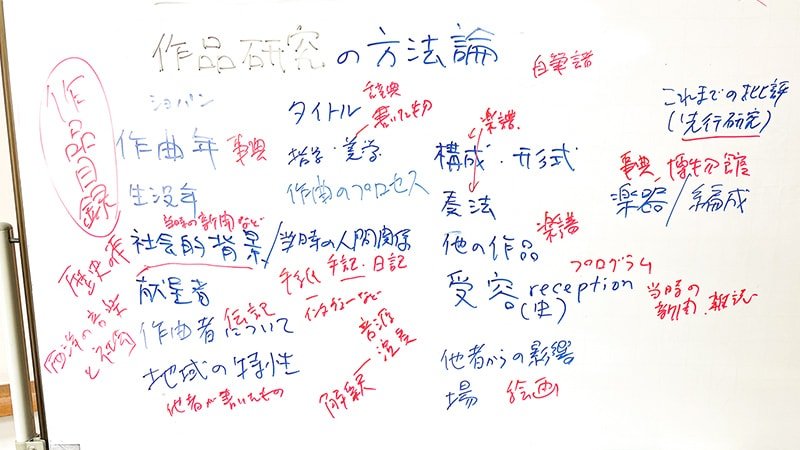 作品研究の方法論
自筆譜
作品目録
ショパン
作曲年 事典
生没年
当時の新聞など
社会的背景/当時の人間関係
歴史の本
献呈者
手紙 手記・日記
インタヴューなど
西洋の音楽と社会
作曲者について
伝記
地域の特性
他者が書いたもの
タイトル
辞典
書いた物
哲学・美学
作曲のプロセス
音源
演奏
解釈
楽譜
構成・形式
奏法
他の作品
楽譜
受容 reception
(史)
プログラム
当時の新聞・雑誌
他者からの影響
場 絵画
これまでの批評
(先行研究)
事典、博物館
楽器/編成